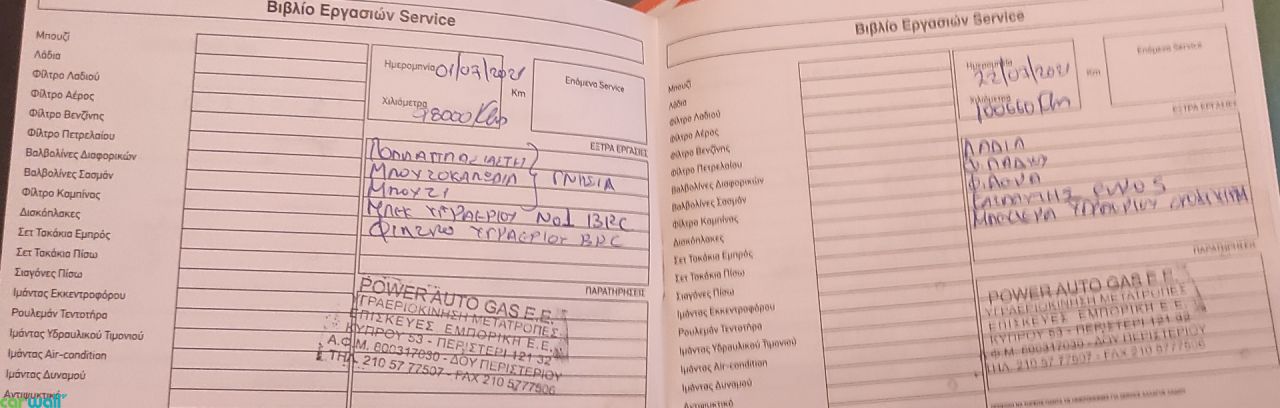 Βιβλίο Εργασιών Service
Μπουζί
Λάδια
Φίλτρο Λαδιού
Φίλτρο Αέρος
Φίλτρο Βενζίνης
Φίλτρο Πετρελαίου
Βαλβολίνες Διαφορικών
Βαλβολίνες Σασμάν
Φίλτρο Καμπίνας
Δισκόπλακες
Σετ Τακάκια Εμπρός
Σετ Τακάκια Πίσω
Σιαγόνες Πίσω
Ιμάντας Εκκεντροφόρου
Ρουλεμάν Τεντοτήρα
Ιμάντας Υδραυλικού Τιμονιού
Ιμάντας Air-condition
Ιμάντας Δυναμού
Αντιψυκτικό
Ημερομηνία 01/07/2021
Km
Χιλιόμετρα
98000 Km
Επόμενο Service
ΕΞΤΡΑ ΕΡΓΑΣΙΕΣ
ΜΠΟΥΖΟΚΑΛΩΔΙΑ ΓΝΗΣΙΑ
ΜΠΟΥΖΙ
ΜΠΕΚ ΥΓΡΑΕΡΙΟΥ Νο1 BRC
ΦΙΛΤΡΟ ΥΓΡΑΕΡΙΟΥ BRC
ΠΑΡΑΤΗΡΗΣΕΙΣ
POWER AUTO GAS E.E.
ΥΓΡΑΕΡΙΟΚΙΝΗΣΗ ΜΕΤΑΤΡΟΠΕΣ
ΕΠΙΣΚΕΥΕΣ ΕΜΠΟΡΙΚΗ Ε.Ε.
ΚΥΠΡΟΥ 53 - ΠΕΡΙΣΤΕΡΙ 121 32
Α.Φ.Μ. 800317030 - ΔΟΥ ΠΕΡΙΣΤΕΡΙΟΥ
ΤΗΛ. 210 57 77507 - FAX 210 5777506
Βιβλίο Εργασιών Service
Μπουζί
Λάδια
Φίλτρο Λαδιού
Φίλτρο Αέρος
Φίλτρο Βενζίνης
Φίλτρο Πετρελαίου
Βαλβολίνες Διαφορικών
Βαλβολίνες Σασμάν
Φίλτρο Καμπίνας
Δισκόπλακες
Σετ Τακάκια Εμπρός
Σετ Τακάκια Πίσω
Σιαγόνες Πίσω
Ιμάντας Εκκεντροφόρου
Ρουλεμάν Τεντοτήρα
Ιμάντας Υδραυλικού Τιμονιού
Ιμάντας Air-condition
Ιμάντας Δυναμού
Αντιψυκτικό
Ημερομηνία
22/07/2021
Km
Χιλιόμετρα
Km
Επόμενο Service
ΕΞΤΡΑ ΕΡΓΑΣΙΕΣ
ΛΑΔΙΑ
ΥΓΡΑΕΡΙΟΥ
ΠΑΡΑΤΗΡΗΣΕΙΣ
POWER AUTO GAS E.E.
ΥΓΡΑΕΡΙΟΚΙΝΗΣΗ ΜΕΤΑΤΡΟΠΕΣ
ΕΠΙΣΚΕΥΕΣ ΕΜΠΟΡΙΚΗ Ε.Ε.
ΚΥΠΡΟΥ 53 - ΠΕΡΙΣΤΕΡΙ 121 32
Φ.Μ. 800317030 - ΔΟΥ ΠΕΡΙΣΤΕΡΙΟΥ
ΤΗΛ. 210 57 77507 - FAX 210 5777506
carwall